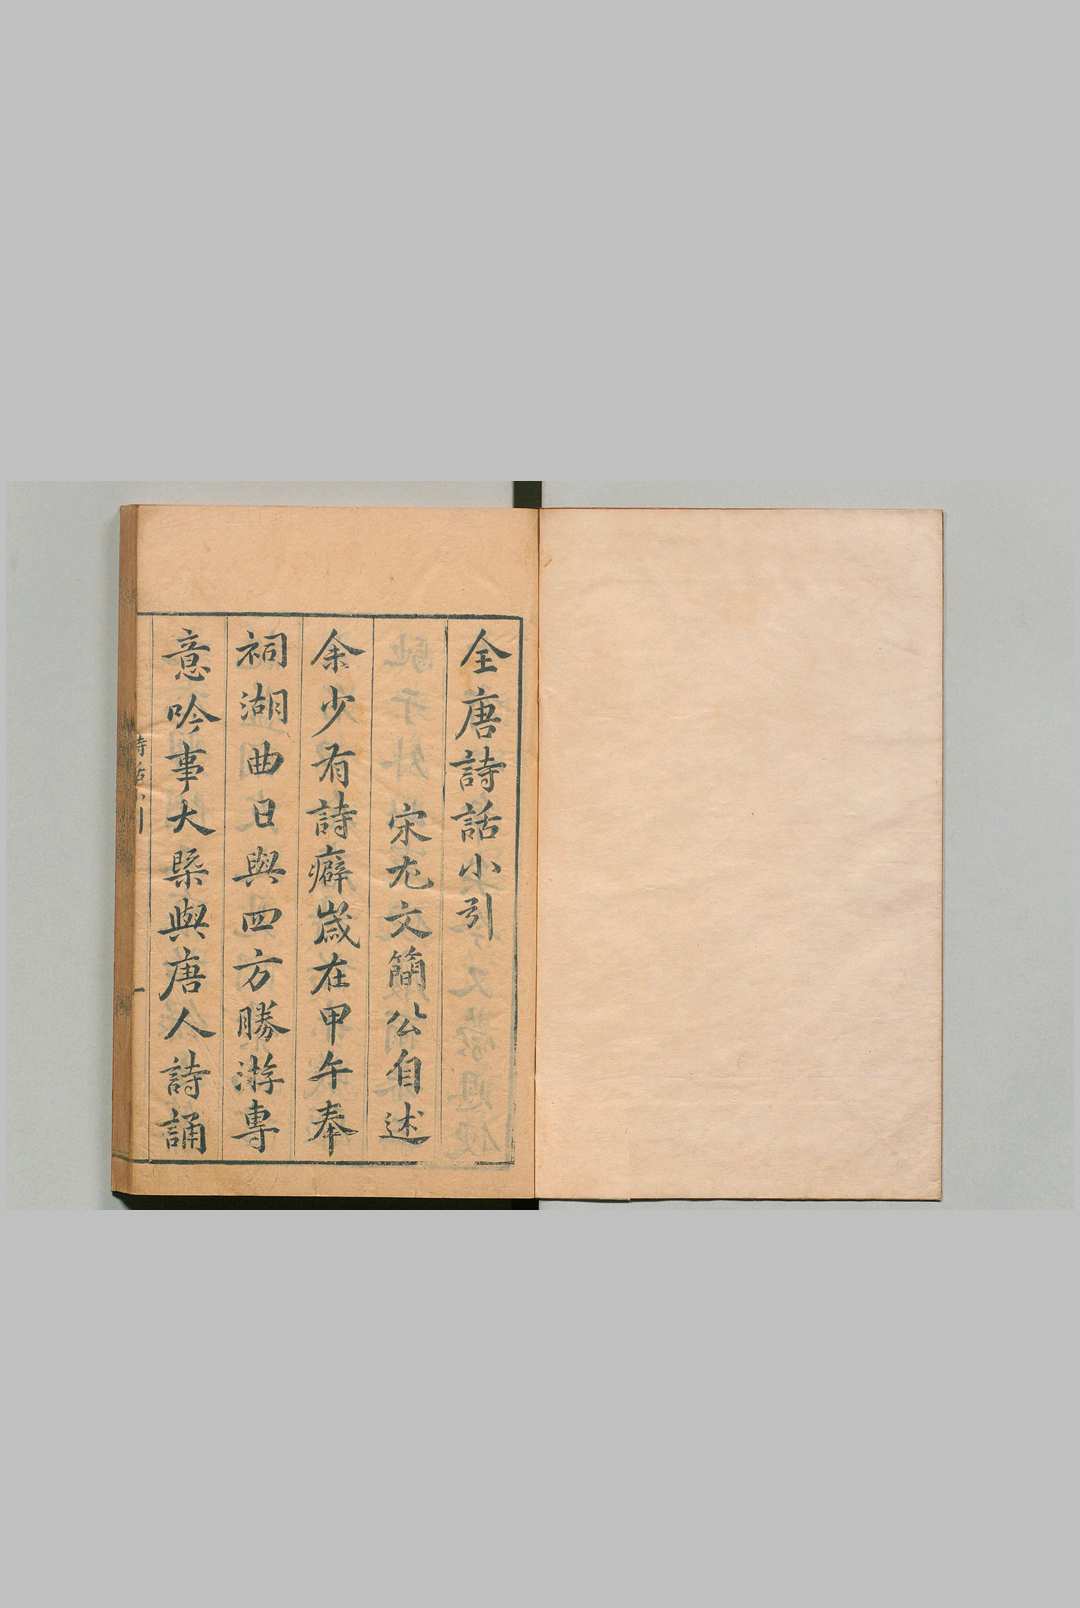 全唐詩話小引
宋尤文簡公自述
余少有詩癖歲在甲午奉
祠湖曲日與四方勝游專
意吟事大槩與唐人詩誦
詩話小引
一